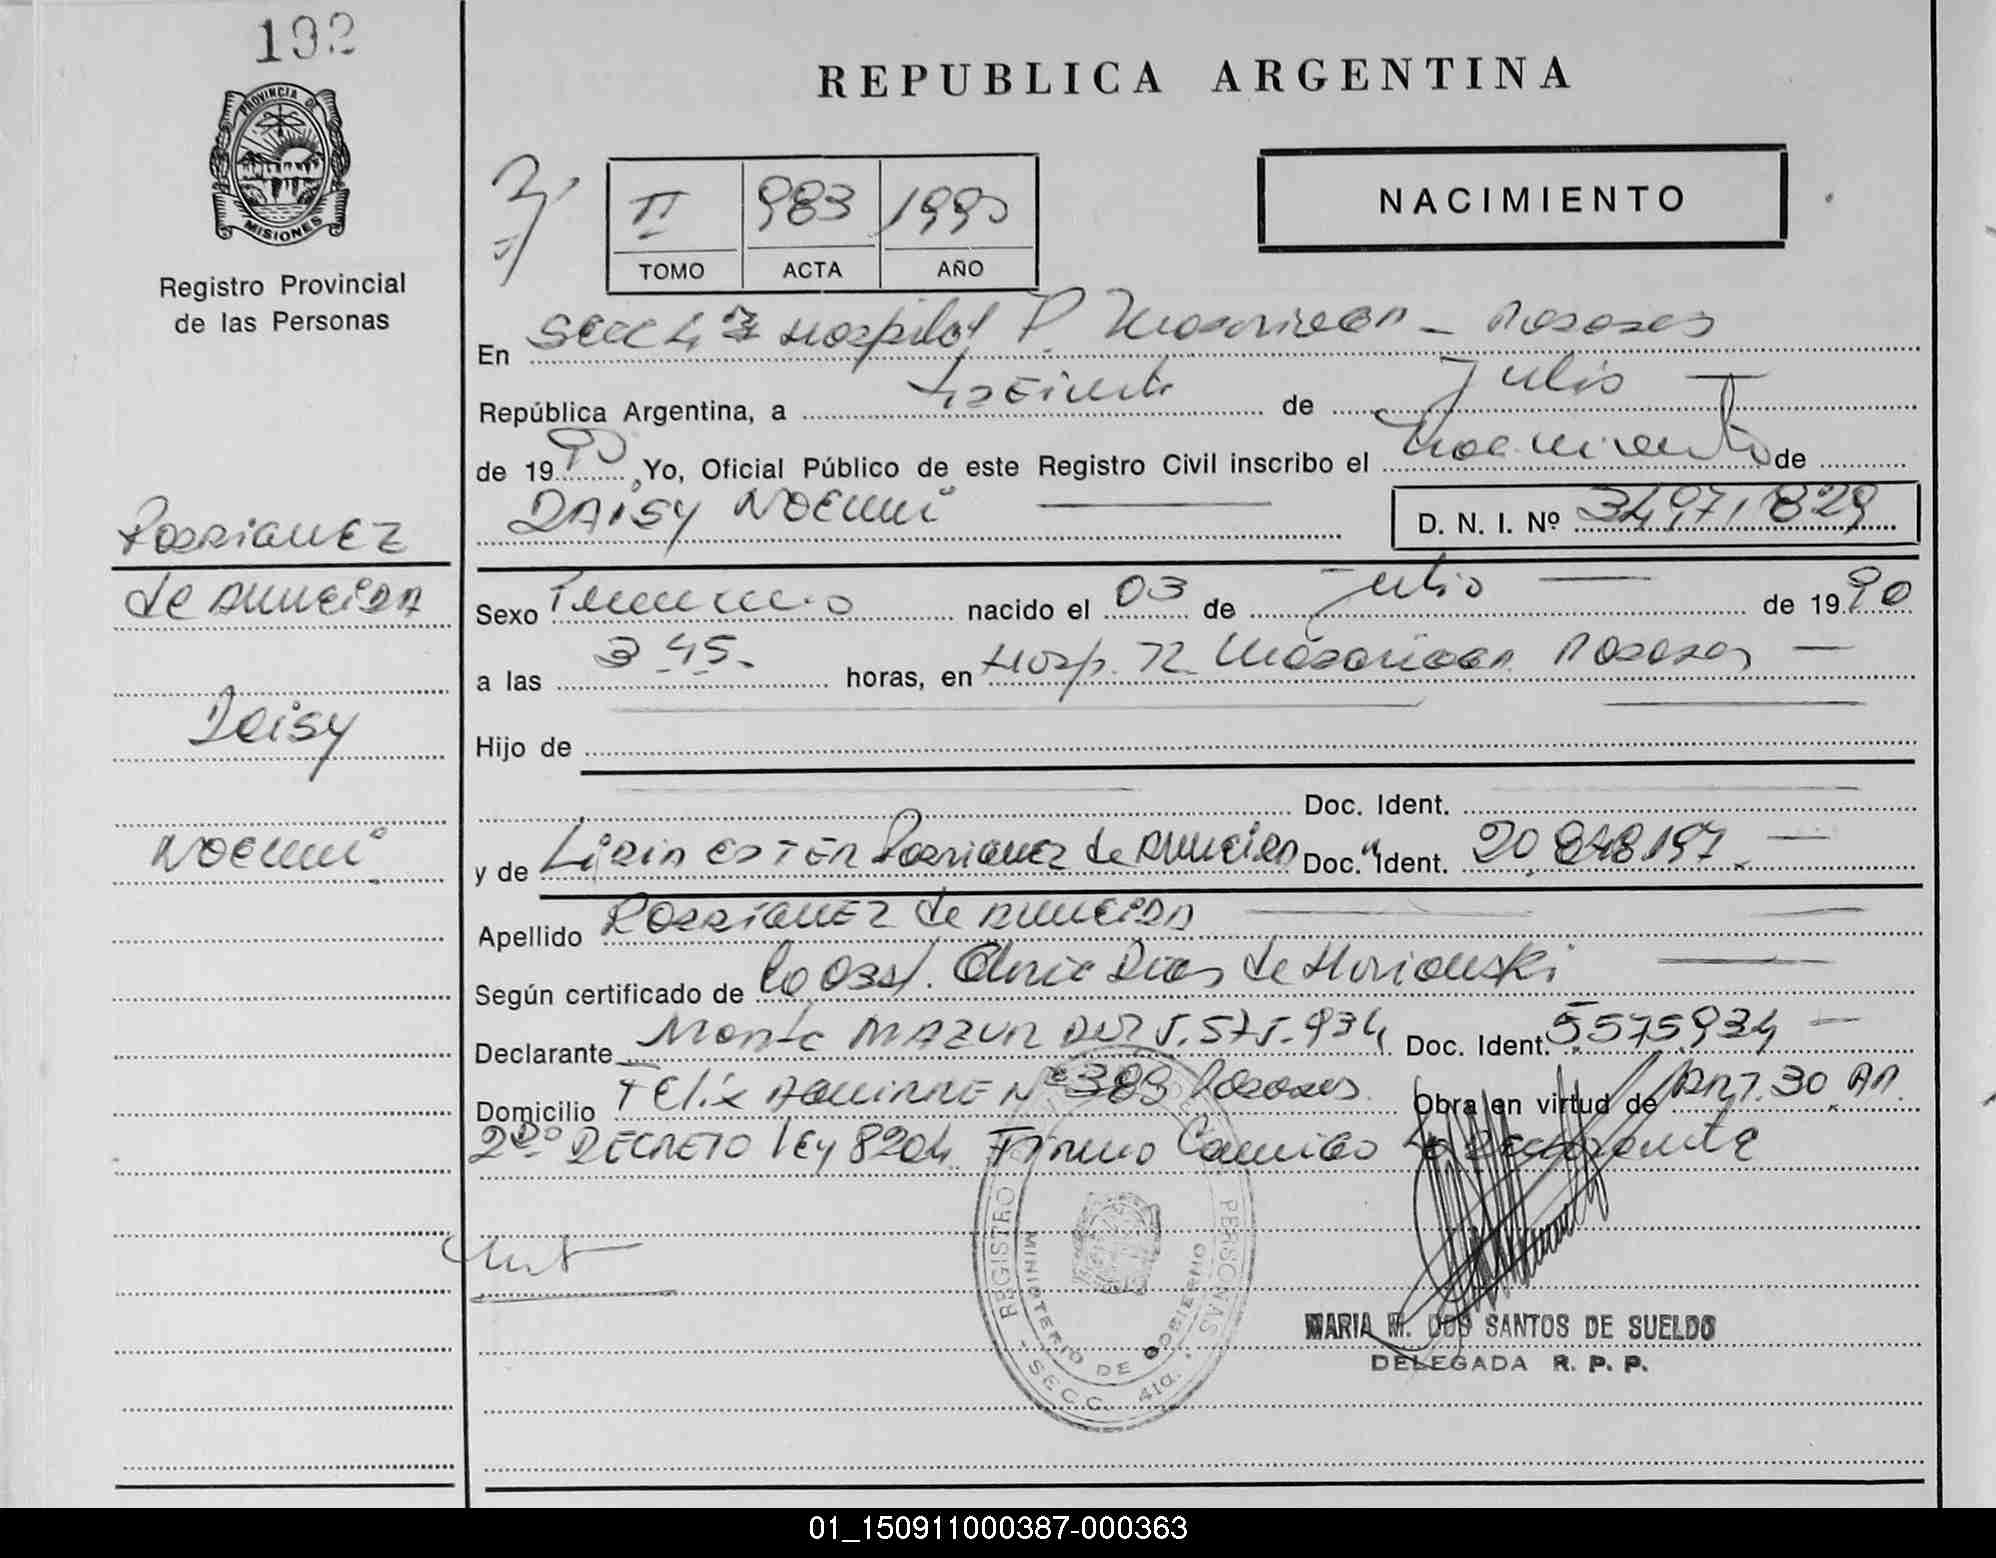 192
REPUBLICA ARGENTINA
PROVINCIA DE
MISIONES
Registro Provincial
de las Personas
II 983 1990
TOMO ACTA AÑO
NACIMIENTO
En Secc 4ª Hospital R. Madariaga - Posadas
República Argentina, a de Julio
de 1990 Yo, Oficial Público de este Registro Civil inscribo el Nacimiento de
DAISY NOEMI D. N. I. Nº 34.971.829
RODRIGUEZ
de ALMEIDA
Daisy
NOEMI
Sexo Femenino nacido el 03 de Julio de 1990
a las 3 45. horas, en Hosp. R Madariaga Posadas
Hijo de
Doc. Ident.
y de ESTER Rodriguez de ALMEIDA Doc. Ident. 20.848.197
Apellido RODRIGUEZ de ALMEIDA
Según certificado de la Obst. Dias de
Declarante MAZUR DNI 5.575.934 Doc. Ident. 5575934
Domicilio Felix AGUIRRE Nº 389 Posadas Obra en virtud de ART. 30 AP.
2do DECRETO Ley 8204 Firma Conmigo la Declarante
REGISTRO PERSONAS
MINISTERIO DE GOBIERNO
SECC. 4ta.
MARIA M. DOS SANTOS DE SUELDO
DELEGADA R. P. P.
01_150911000387-000363